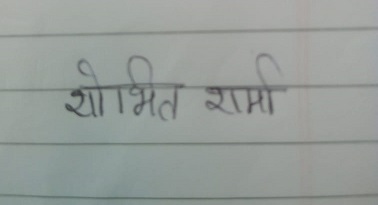 शोभित शर्मा